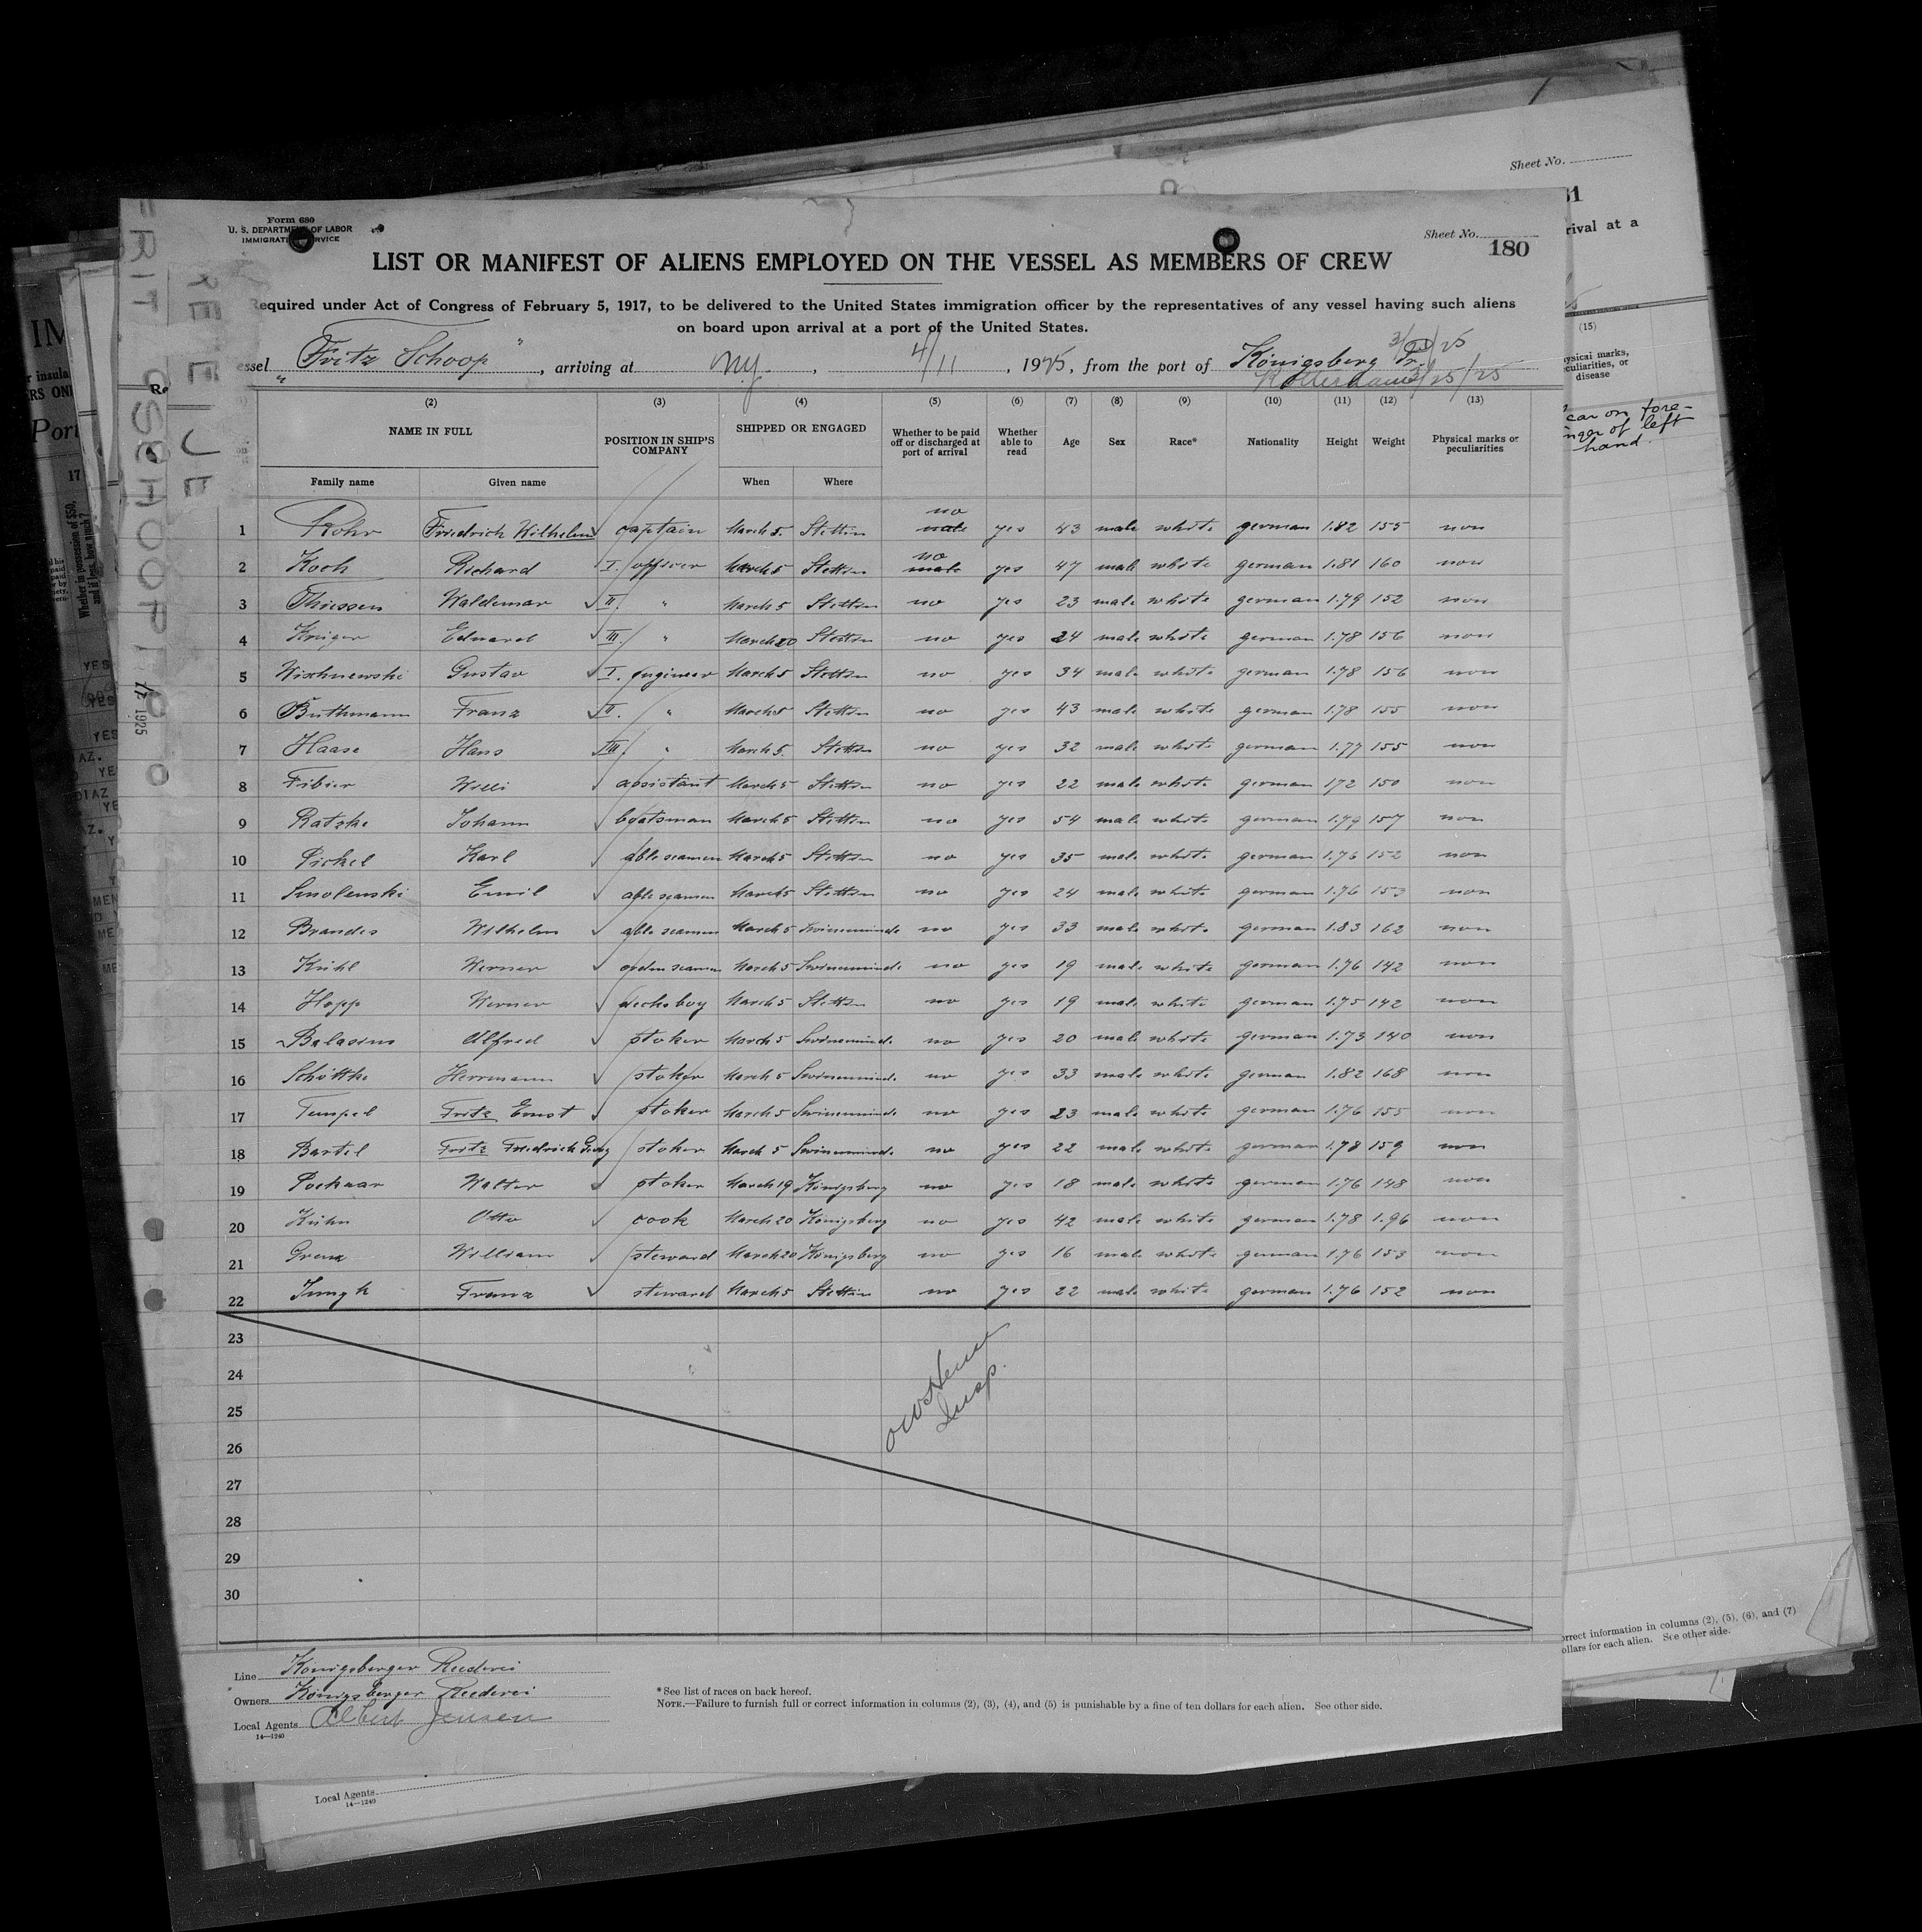 Form 680
U. S. DEPARTMENT OF LABOR
IMMIGRATION SERVICE
Sheet No.
180
LIST OR MANIFEST OF ALIENS EMPLOYED ON THE VESSEL AS MEMBERS OF CREW
Required under Act of Congress of February 5, 1917, to be delivered to the United States immigration officer by the representatives of any vessel having such aliens
on board upon arrival at a port of the United States.
essel "Fritz Schoop", arriving at NY., 4/11, 1925, from the port of Königsberg Pr.
3/25/25
(2) (3) (4) (5) (6) (7) (8) (9) (10) (11) (12) (13)
NAME IN FULL POSITION IN SHIP'S COMPANY SHIPPED OR ENGAGED Whether to be paid off or discharged at port of arrival Whether able to read Age Sex Race* Nationality Height Weight Physical marks or peculiarities
Family name Given name When Where
1 Rohr Friedrich Wilhelm captain March 5. Stettin no male yes 43 male white german 1.82 155 non
2 Koch Richard I. officer March 5 Stettin no male yes 47 male white german 1.81 160 non
3 Thiessen Waldemar II. " March 5 Stettin no yes 23 male white german 1.79 152 non
4 Krüger Eduard III " March 20 Stettin no yes 24 male white german 1.78 156 non
5 Wischnewski Gustav I. engineer March 5 Stettin no yes 34 male white german 1.78 156 non
6 Buthmann Franz II. " March 5 Stettin no yes 43 male white german 1.78 155 non
7 Haase Hans III. " March 5. Stettin no yes 32 male white german 1.77 155 non
8 Fibier Willi assistant March 5 Stettin no yes 22 male white german 172 150 non
9 Ratzke Johann boatsman March 5 Stettin no yes 54 male white german 1.79 157 non
10 Pickel Karl able seamen March 5 Stettin no yes 35 male white german 1.76 152 non
11 Smolenski Emil able seamen March 5 Stettin no yes 24 male white german 1.76 153 non
12 Brandes Wilhelm able seamen March 5 Swinemünde no yes 33 male white german 1.83 162 non
13 Kühl Werner orden seamen March 5 Swinemünde no yes 19 male white german 1.76 142 non
14 Hopp Werner decksboy March 5 Stettin no yes 19 male white german 1.75 142 non
15 Balasius Alfred stoker March 5 Swinemünde no yes 20 male white german 1.73 140 non
16 Schöttke Herrmann stoker March 5 Swinemünde no yes 33 male white german 1.82 168 non
17 Tempel Fritz Ernst stoker March 5 Swinemünde no yes 23 male white german 1.76 155 non
18 Bartel Fritz Friedrich Georg stoker March 5 Swinemünde no yes 22 male white german 1.78 159 non
19 Pocknar Walter stoker March 19 Königsberg no yes 18 male white german 1.76 148 non
20 Kühn Otto cook March 20 Königsberg no yes 42 male white german 1.78 1.96 non
21 Grenz William steward March 20 Königsberg no yes 16 male white german 1.76 153 non
22 Jungk Franz steward March 5 Stettin no yes 22 male white german 1.76 152 non
23
24
25
26
27
28
29
30
Insp.
Line Königsberger Reederei
Owners Königsberger Reederei
Local Agents Albert Jensen
14—1240
*See list of races on back hereof.
NOTE.—Failure to furnish full or correct information in columns (2), (3), (4), and (5) is punishable by a fine of ten dollars for each alien. See other side.
Sheet No.
rival at a
(15)
disease
car on fore-
left
hand
orrect information in columns (2), (5), (6), and (7)
ollars for each alien. See other side.
Local Agents
14—1240
1925